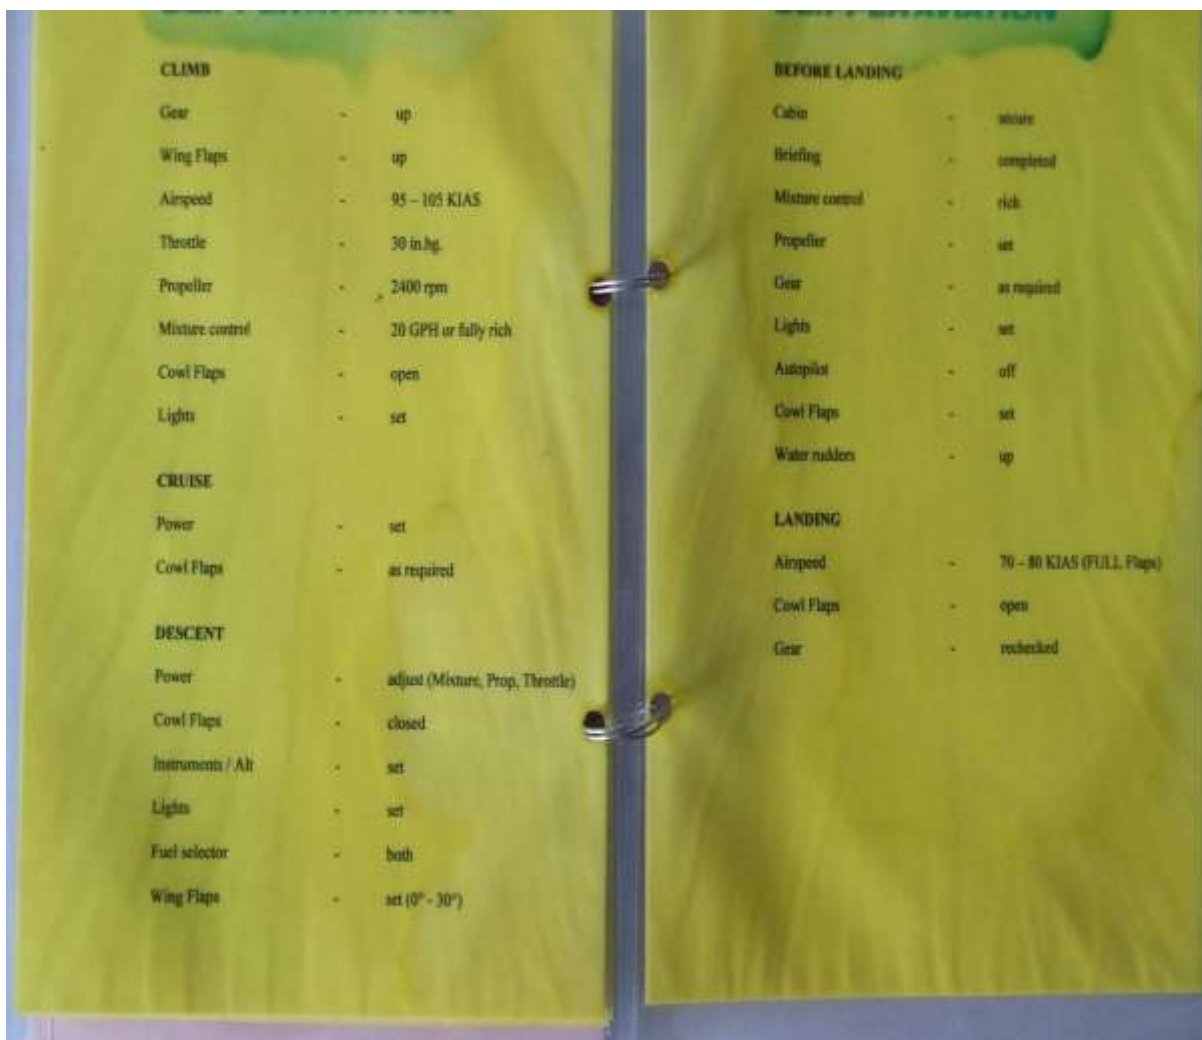 CLIMB
Gear - up
Wing Flaps - up
Airspeed - 95 – 105 KIAS
Throttle - 30 in.hg.
Propeller - 2400 rpm
Mixture control - 20 GPH or fully rich
Cowl Flaps - open
Lights - set
CRUISE
Power - set
Cowl Flaps - as required
DESCENT
Power - adjust (Mixture, Prop, Throttle)
Cowl Flaps - closed
Instruments / Alt - set
Lights - set
Fuel selector - both
Wing Flaps - set (0° - 30°)
BEFORE LANDING
Cabin - secure
Briefing - completed
Mixture control - rich
Propeller - set
Gear - as required
Lights - set
Autopilot - off
Cowl Flaps - set
Water rudders - up
LANDING
Airspeed - 70 – 80 KIAS (FULL Flaps)
Cowl Flaps - open
Gear - rechecked